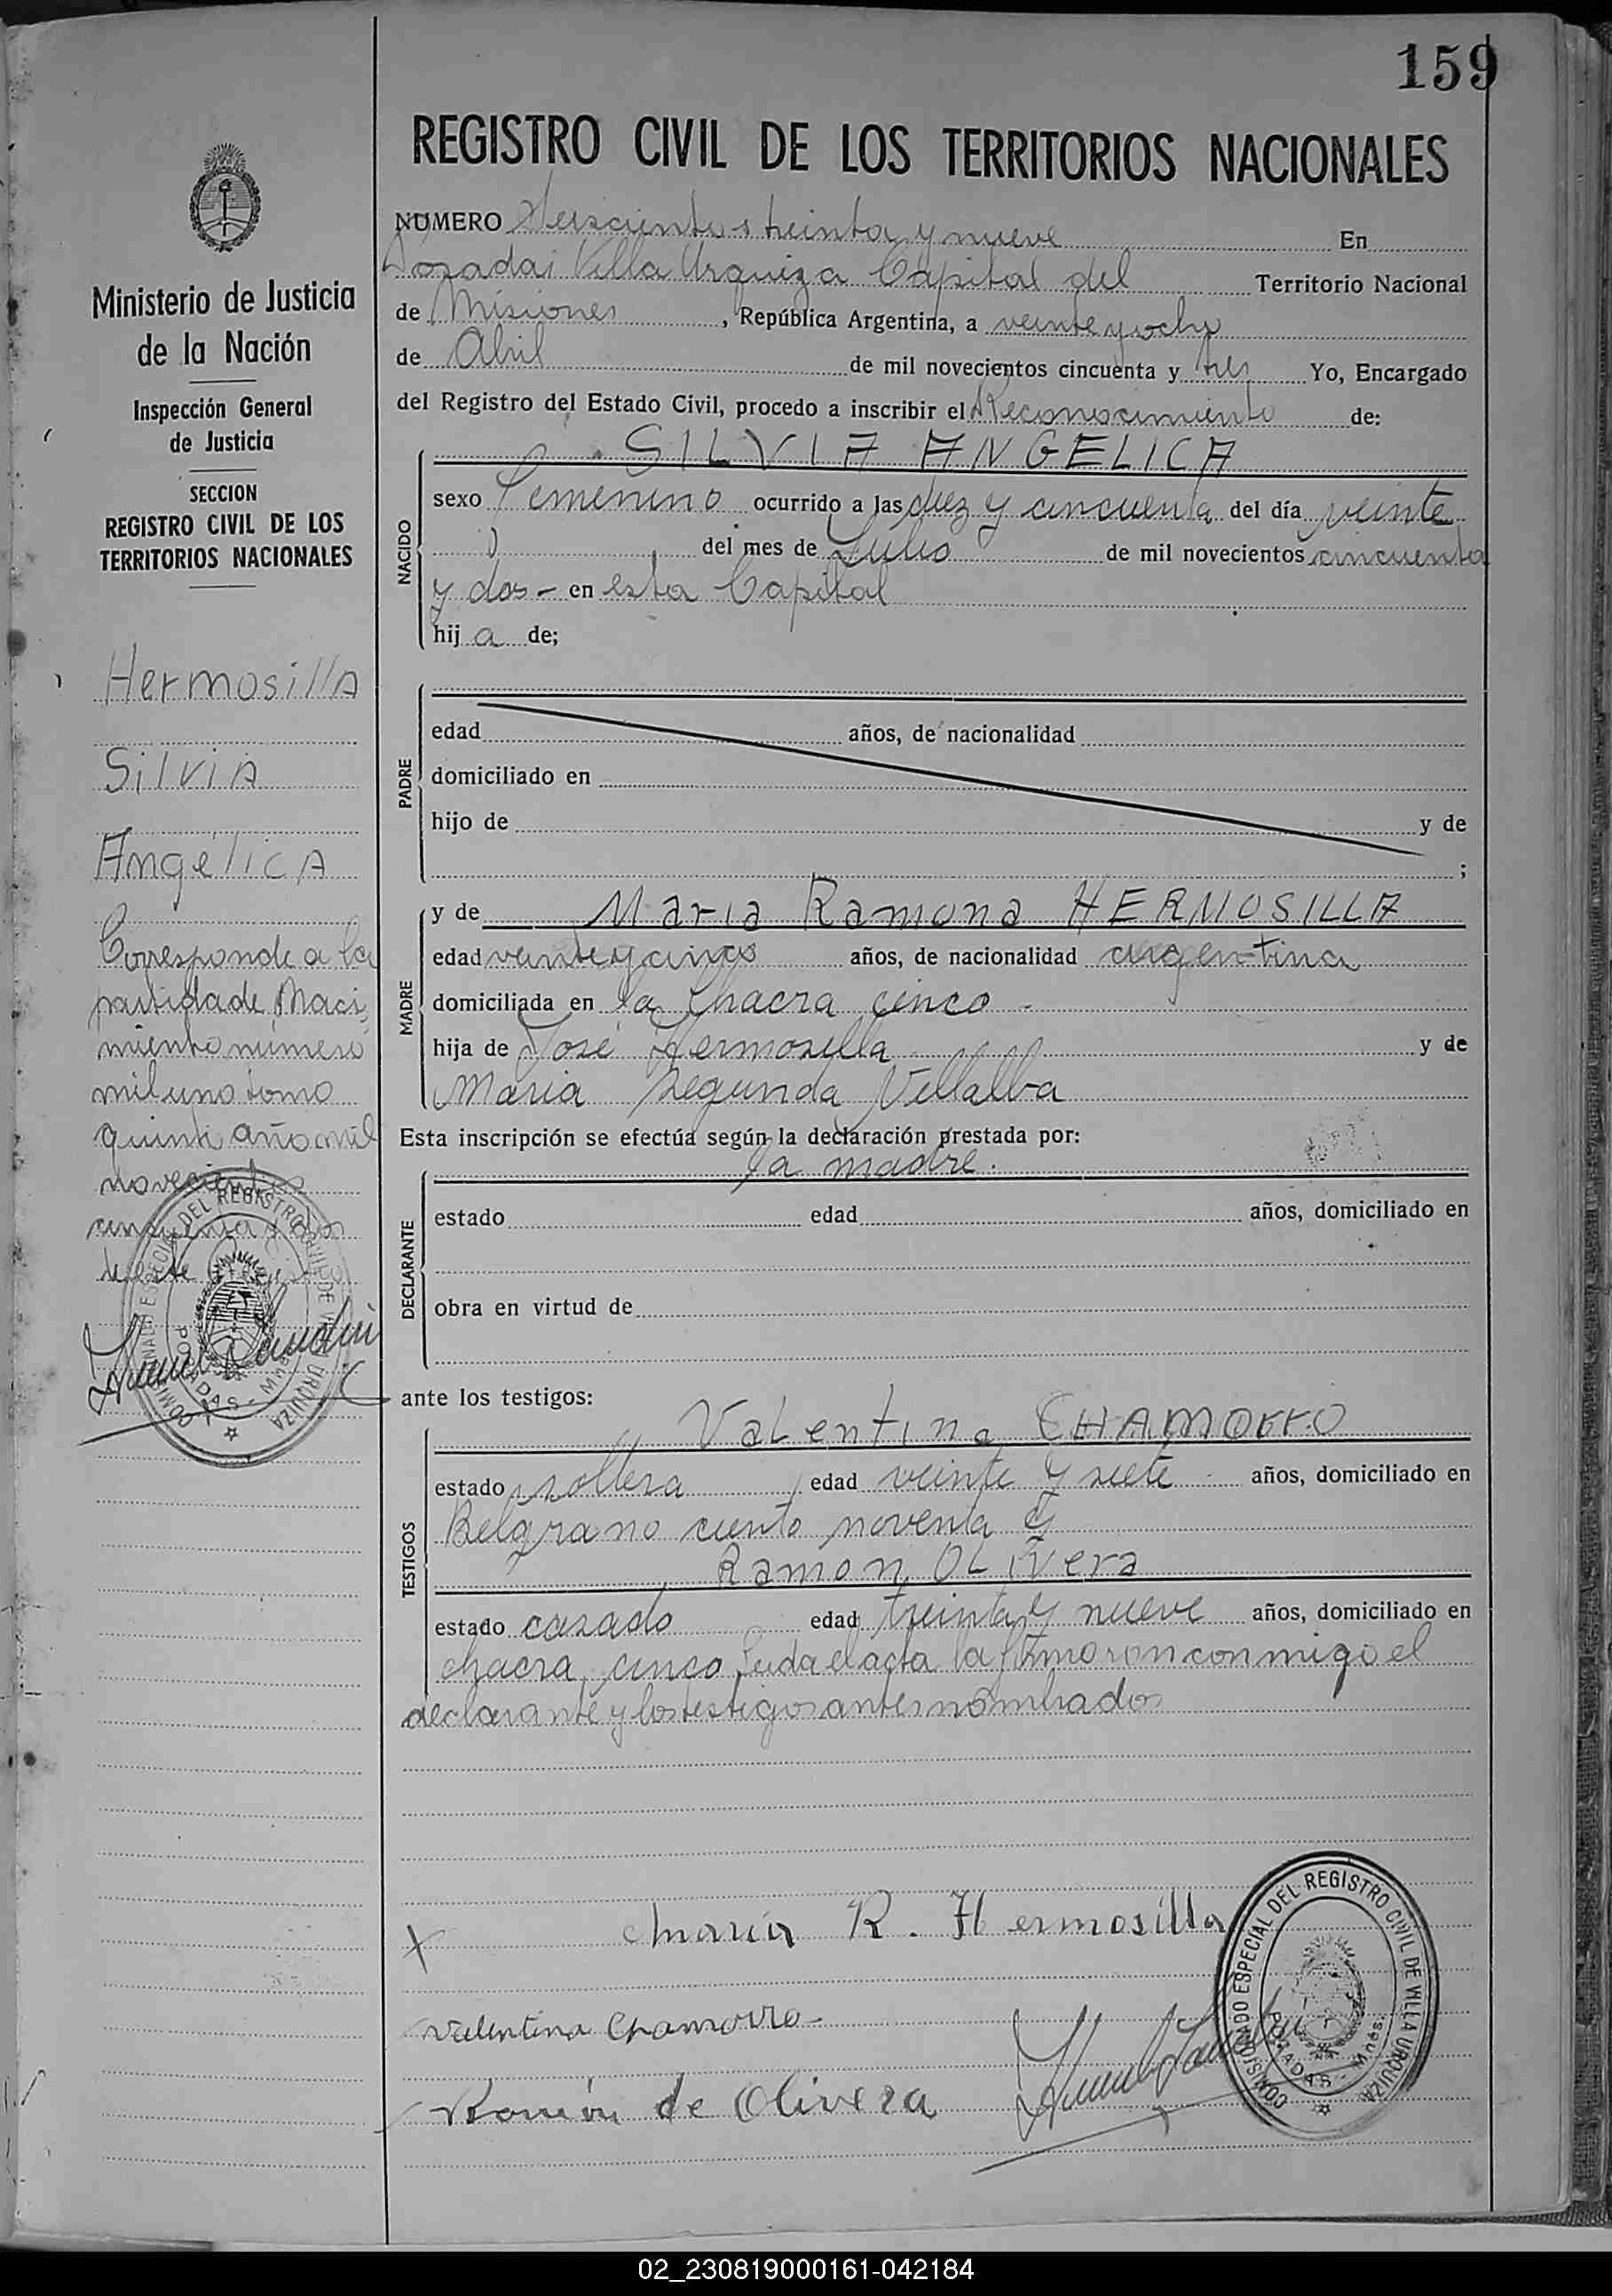 159
REGISTRO CIVIL DE LOS TERRITORIOS NACIONALES
Ministerio de Justicia
de la Nación
Inspección General
de Justicia
SECCION
REGISTRO CIVIL DE LOS
TERRITORIOS NACIONALES
Hermosilla
Silvia
Angélica
Corresponde a la
partida de Naci
miento número
mil uno tomo
quinto año mil
novecientos
cincuenta y dos
de este
NUMERO treinta y nueve En
Posadas Villa Urquiza Capital del Territorio Nacional
de Misiones, República Argentina, a veinte y ocho
de Abril de mil novecientos cincuenta y tres Yo, Encargado
del Registro del Estado Civil, procedo a inscribir el Reconocimiento de:
NACIDO
SILVIA ANGELICA
sexo femenino ocurrido a las diez y cincuenta del día veinte
del mes de Julio de mil novecientos cincuenta
y dos - en esta Capital
hij a de;
PADRE
edad años, de nacionalidad
domiciliado en
hijo de y de
;
MADRE
y de Maria Ramona HERMOSILLA
edad veinte y cinco años, de nacionalidad argentina
domiciliada en la chacra cinco -
hija de José Hermosilla y de
Maria Segunda Villalba
Esta inscripción se efectúa según la declaración prestada por:
DECLARANTE
la madre.
estado edad años, domiciliado en
obra en virtud de
ante los testigos:
TESTIGOS
Valentina CHAMORRO
estado soltera edad veinte y siete años, domiciliado en
Belgrano ciento noventa y
Ramon OLivera
estado casado edad treinta y nueve años, domiciliado en
chacra cinco Leida el acta la firmaron conmigo el
declarante y los testigos antes nombrados
X María R. Hermosilla
Valentina Chamorro
Ramón de Olivera
COMISIONADO ESPECIAL DEL REGISTRO CIVIL DE VILLA URQUIZA
POSADAS - Mnes.
02_230819000161-042184